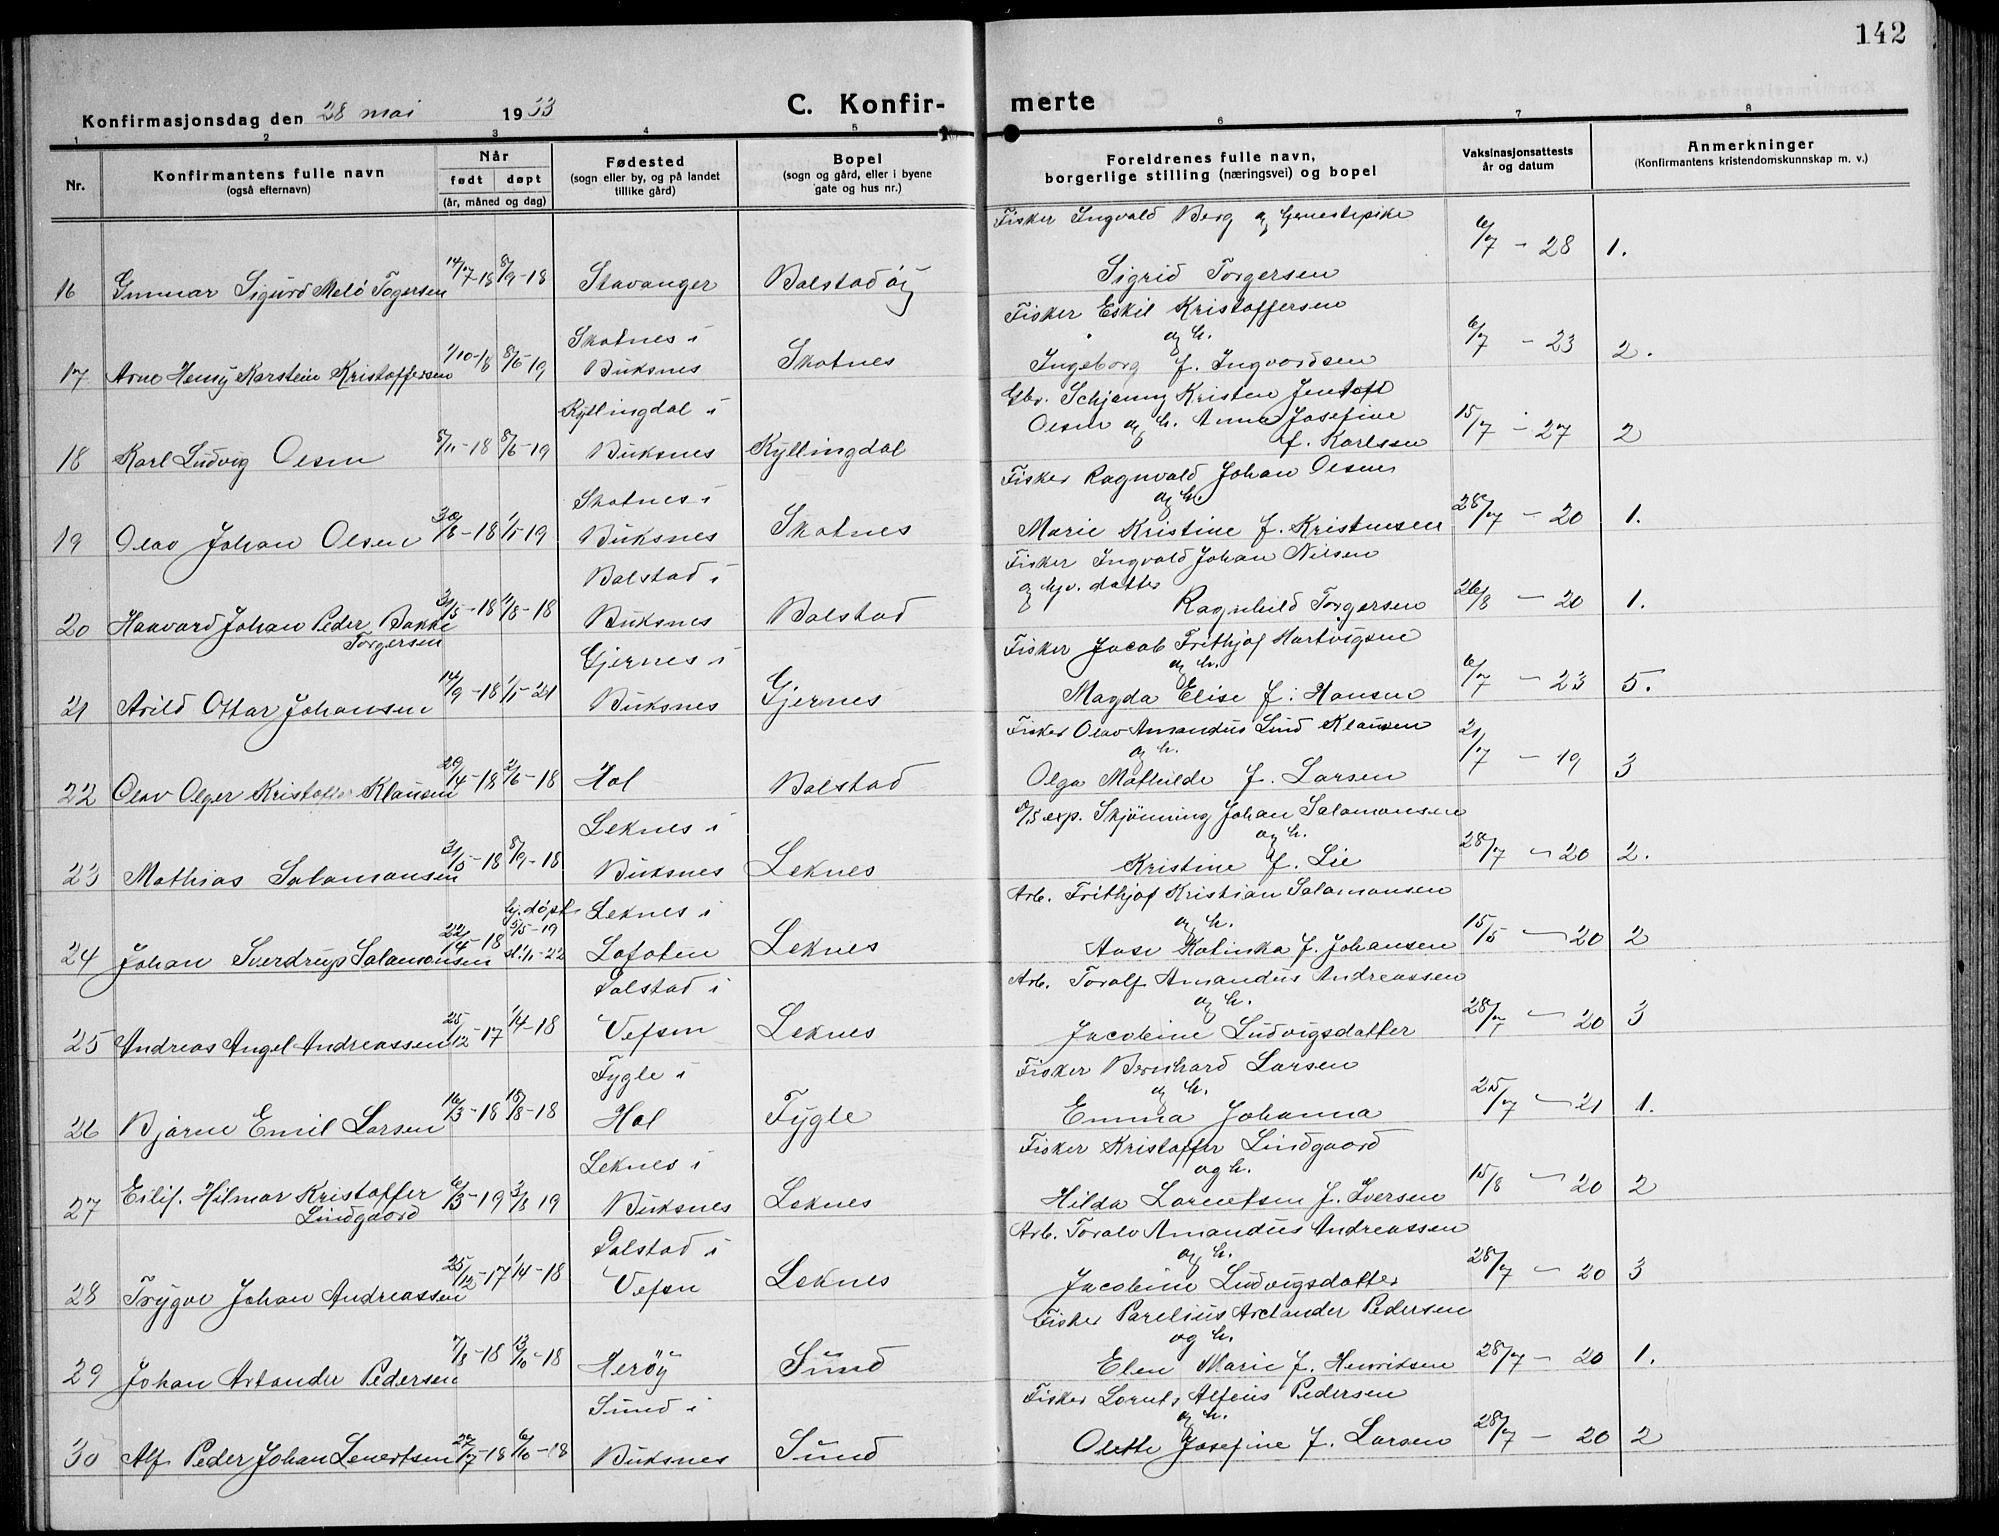 142
Konfirmasjonsdag den 28 mai 1933
C. Konfir-
merte
1 2 3 4 5 6 7 8
Nr.
Konfirmantens fulle navn
(også efternavn)
Når
født døpt
(år, måned og dag)
Fødested
(sogn eller by, og på landet
tillike gård)
Bopel
(sogn og gård, eller i byene
gate og hus nr.)
Foreldrenes fulle navn,
borgerlige stilling (næringsvei) og bopel
Vaksinasjonsattests
år og datum
Anmerkninger
(Konfirmantens kristendomskunnskap m. v.)
Fisker Ingvald Berg og tjenestepike
16 Gunnar Sigurd Melö Togersen 14/7-18 8/9-18 Stavanger Balstadöy Sigrid Torgersen 6/7 - 28 1.
Skotnes i Fisker Eskil Kristoffersen
og h.
17 Arne Henry Karstein Kristoffersen 1/10-18 8/6-19 Buksnes Skotnes Ingeborg f. Ingvordsen 6/7 - 23 2.
Kyllingdal i Gbr. Schjønny Kristen Jentoft
Olsen og h. Anna Josefine
18 Karl Ludvig Olsen 8/11-18 8/6-19 Buksnes Kyllingdal f. Karlsen 15/7 - 27 2
Skotnes i Fisker Ragnvald Johan Olsen
og h.
19 Olav Johan Olsen 30/8-18 1/5-19 Buksnes Skotnes Marie Kristine f. Kristensen 28/7 - 20 1.
Balstad i Fisker Ingvald Johan Nilsen
og hjv. datter
20 Haavard Johan Peder Bakke 31/5-18 11/8-18 Buksnes Balstad Ragnhild Torgersen 26/8 - 20 1.
Torgersen
Gjernes i Fisker Jacob Frithjof Hartvigsen
og h.
21 Arild Ottar Johansen 14/9-18 1/1-21 Buksnes Gjernes Magda Elise f. Hansen 6/7 - 23 5.
Fisker Olav Amandus Lind Klausen
og h.
22 Olav Olger Kristoffer Klausen 29/4-18 2/6-18 Hol Balstad Olga Mathilde f. Larsen 21/7 - 19 3
Leknes i D/S exp. Skjönning Johan Salamonsen
og h.
23 Mathias Salamonsen 31/5-18 8/9-18 Buksnes Leknes Kristine f. Lie 28/7 - 20 2.
hj. døpt Leknes i Arb. Frithjof Kristian Salamonsen
5/5-19 og h.
24 Johan Sverdrup Salamonsen 22/4-18 st. 1/1-22 Lofoten Leknes Aase Katinka f. Johansen 15/5 - 20 2
Dalstad i Arb. Toralf Amandus Andreassen
og h.
25 Andreas Angel Andreassen 25/12-17 1/4-18 Vefsn Leknes Jacobine Ludvigsdatter 28/7 - 20 3
Fygle i Fisker Bernhard Larsen
og h.
26 Bjarne Emil Larsen 16/3-18 18/8-18 Hol Fygle Emma Johanna 25/7 - 21 1.
Leknes i Fisker Kristoffer Lindgaard
og h.
27 Eilif. Hilmar Kristoffer 6/3-19 3/8 19 Buksnes Leknes Hilda Lorentsen f. Iversen 15/8 - 20 2
Lindgaard
Dalstad i Arb. Toralv Amandus Andreassen
og h.
28 Trygve Johan Andreassen 25/12-17 1/4-18 Vefsn Leknes Jacobine Ludvigsdatter 28/7 - 20 3
Fisker Parelius Arctander Pedersen
og h.
29 Johan Artander Pedersen 7/8-18 13/10-18 Herøy Sund Elen Marie f. Henriksen 28/7 - 20 1.
Sund i Fisker Lornts Alfeus Pedersen
og h.
30 Alf Peder Johan Lenertsen 27/7-18 6/10-18 Buksnes Sund Olette Josefine f. Larsen 28/7 - 20 2